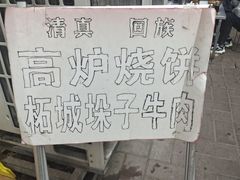 清真 回族
高炉烧饼
柘城垛子牛肉